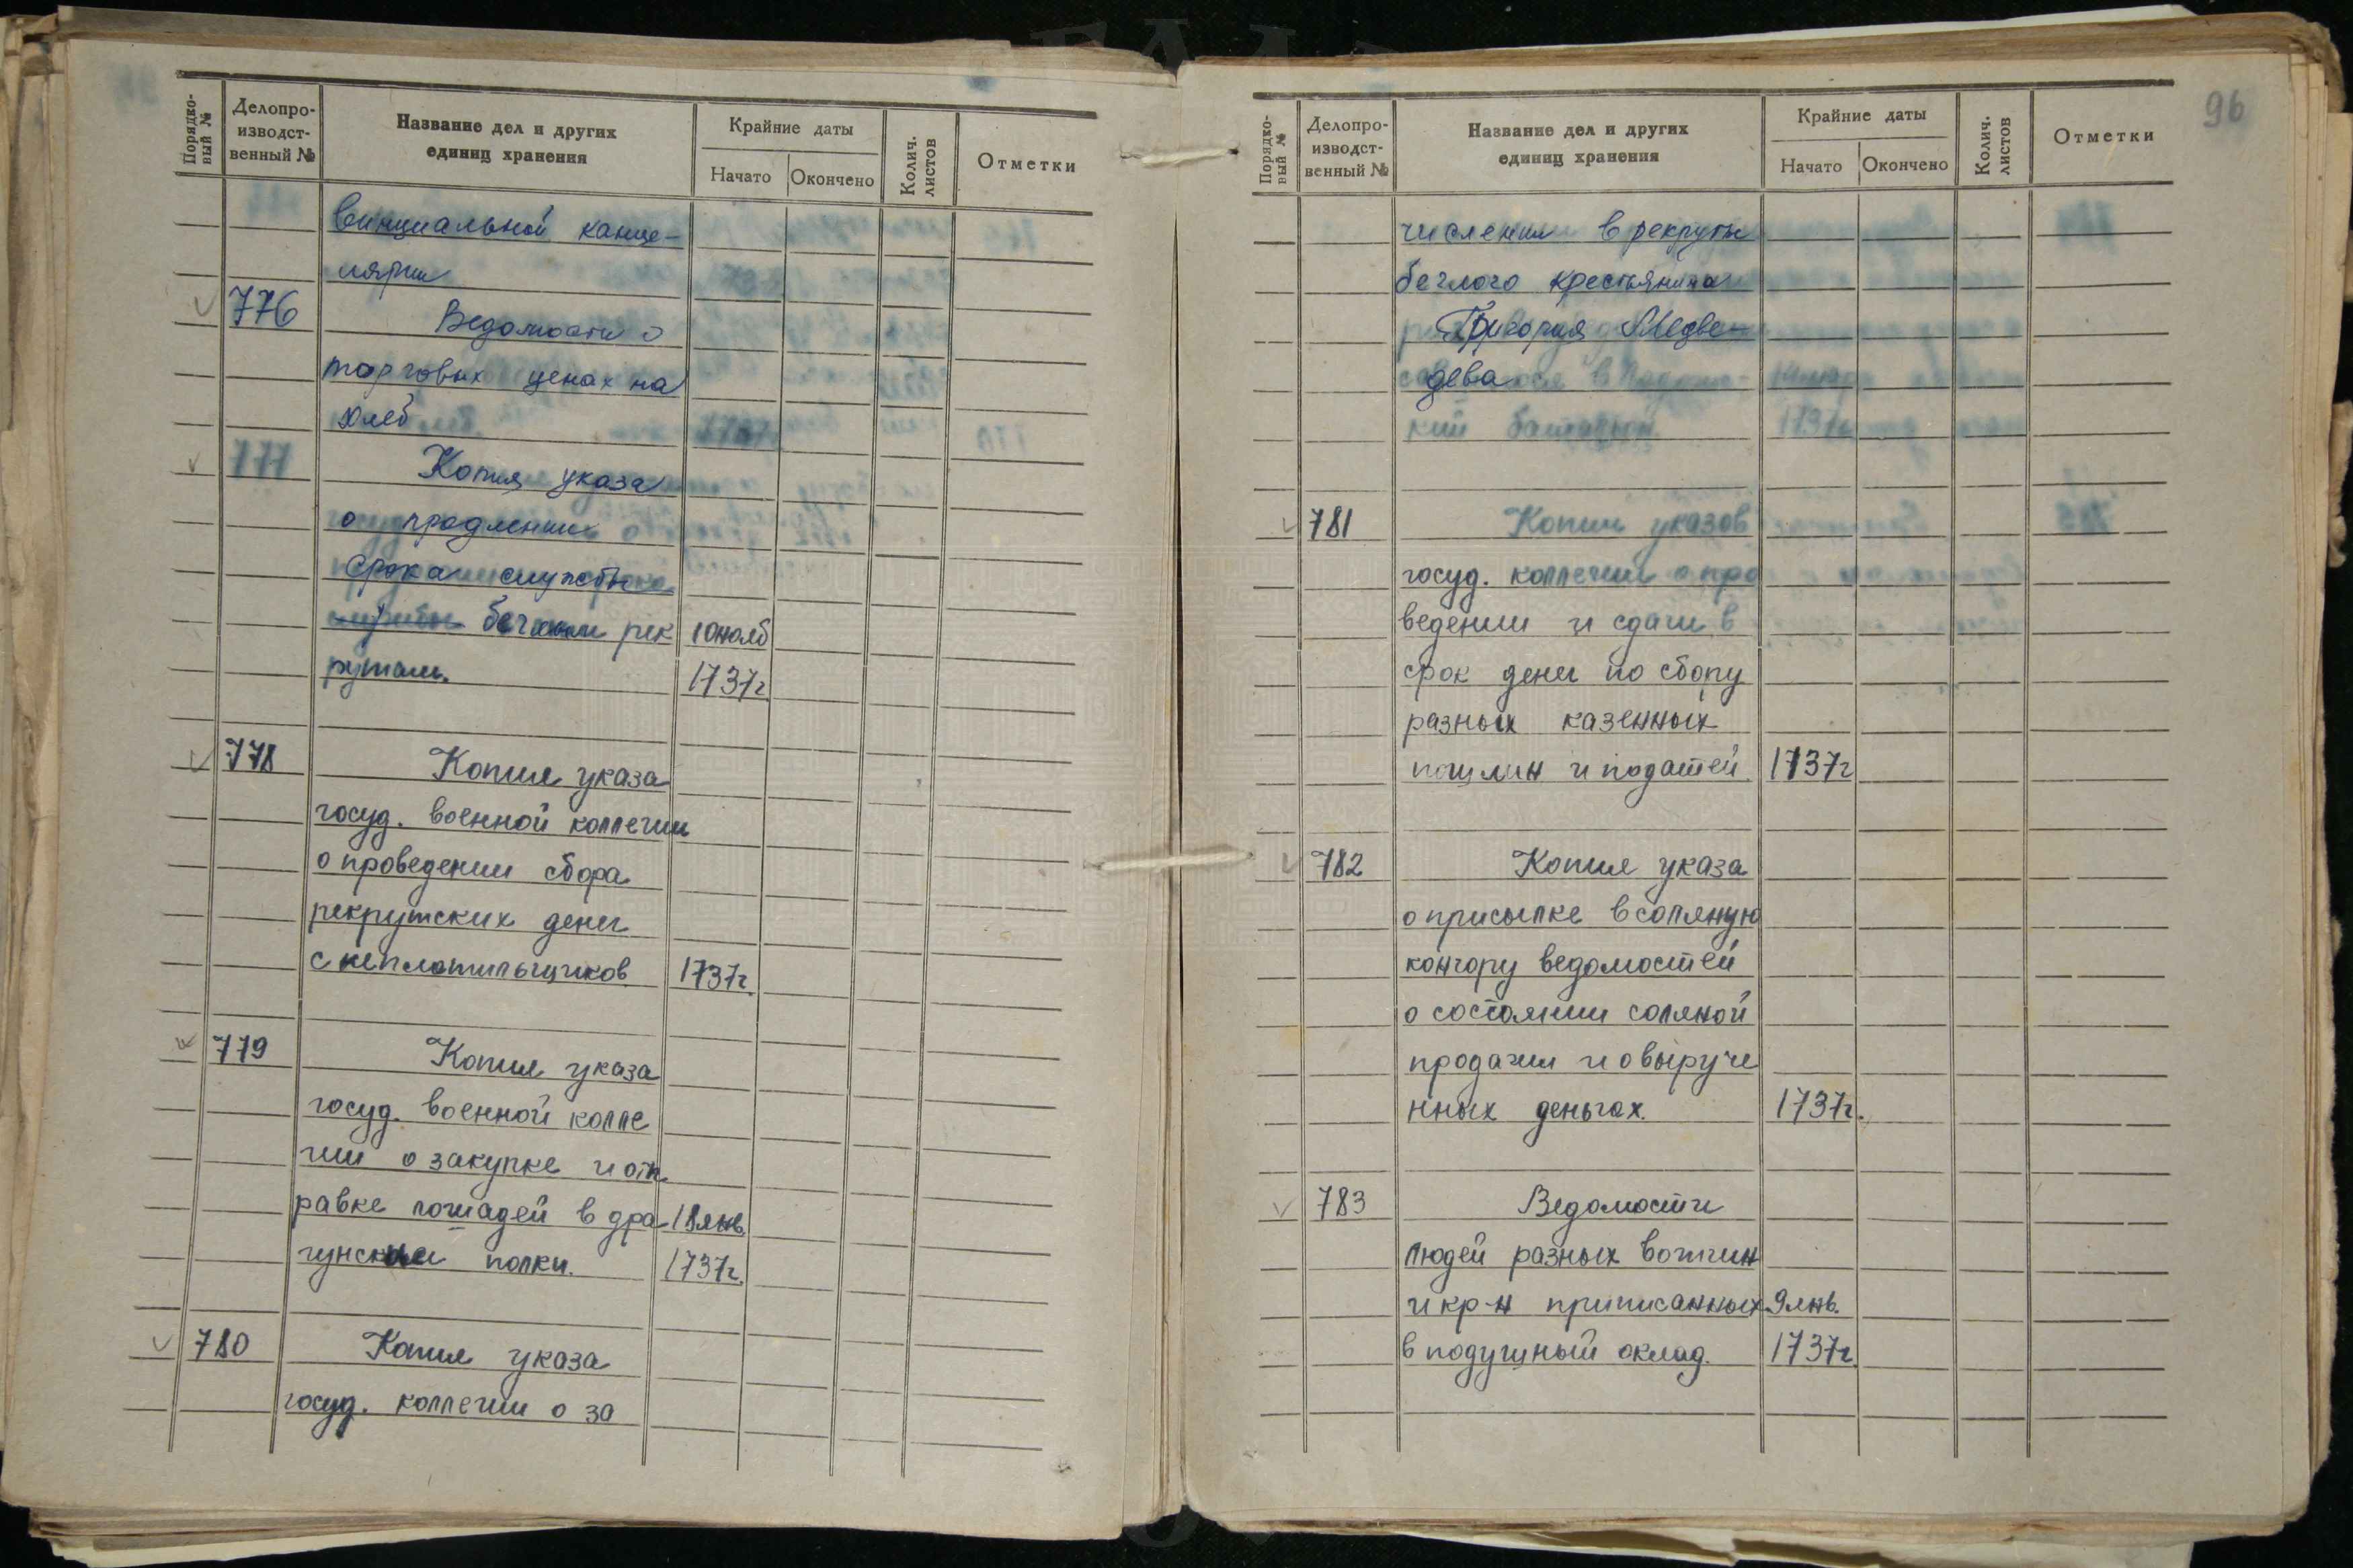 Порядко-
вый №
Делопро-
изводст-
венный №
Название дел и других
единиц хранения
Крайние даты
Начато
Окончено
Колич.
листов
Отметки
винциальной канце-
лярии
776
Ведомости о
торговых ценах на
хлеб
777
Копия указа
о продлении
срока службы
службы беглыми рек
10 нояб
рутам.
1737г
778
Копия указа
госуд. военной коллегии
о проведении сбора
рекрутских денег
с неплательщиков
1737г.
779
Копия указа
госуд. военной колле
гии о закупке и отп
равке лошадей в дра
18 янв.
гунские полки.
1737г.
780
Копия указа
госуд. коллегии о за
96
Порядко-
вый №
Делопро-
изводст-
венный №
Название дел и других
единиц хранения
Крайние даты
Начато
Окончено
Колич.
листов
Отметки
числении в рекруты
беглого крестьянина
Григория Медве-
дева
1737г
781
Копии указов
госуд. коллегии о про
ведении и сдачи в
срок денег по сбору
разных казенных
пошлин и податей
1737г
782
Копия указа
о присылке в соляную
контору ведомостей
о состоянии соляной
продажи и о выруче
нных деньгах.
1737г.
783
Ведомости
людей разных вотчин
и кр-н приписанных
9 янв.
в подушный оклад.
1737г.